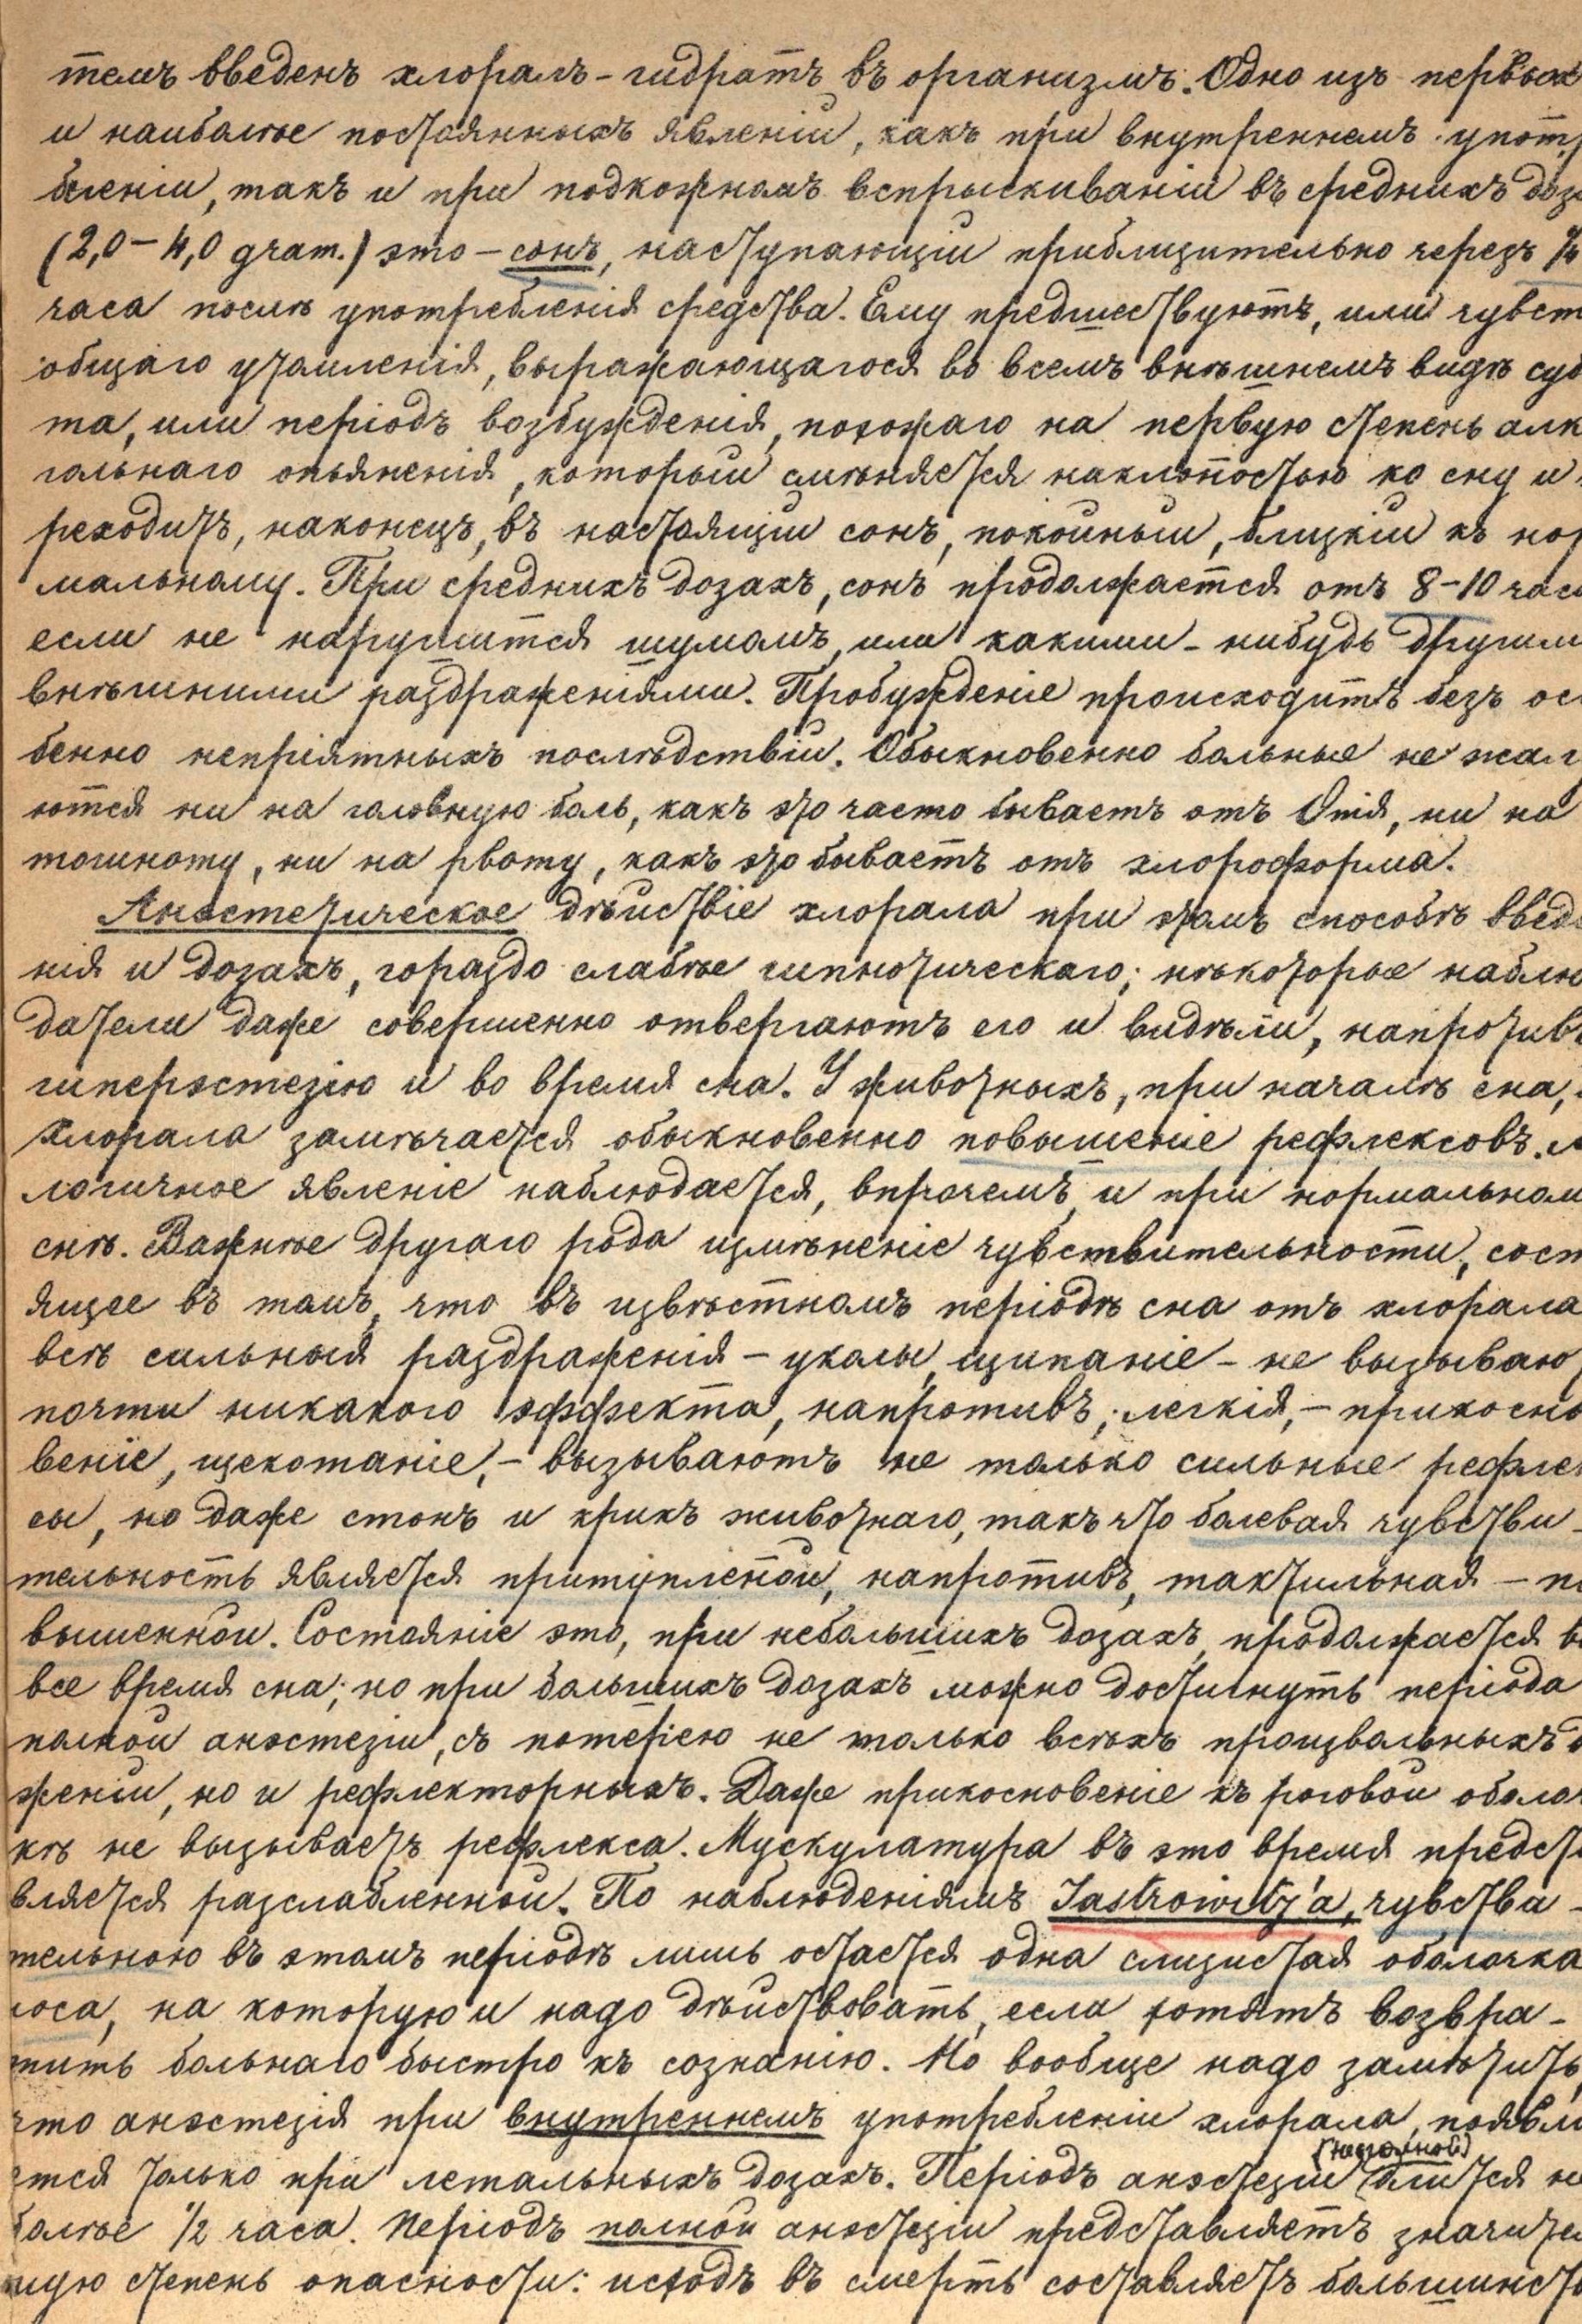 темъ введенъ хлоралъ-гидратъ въ организмъ. Одно изъ первых
и наиболѣе постоянныхъ явленіи, какъ при внутреннемъ упот
бленіи, такъ и при подкожномъ вспрыскиваніи въ среднихъ доз
(2,0–4,0 gram.) это – сонъ, наступающіи приблизительно черезъ ¼
часа послѣ употребленія средства. Ему предшествуютъ, или чувст
общаго утомленія, выражающагося во всемъ внѣшнемъ видѣ суб
та, или періодъ возбужденія, похожаго на первую степень алк
гольнаго опьяненія, которыи смѣняется наклоностью ко сну и
реходитъ, наконецъ, въ настоящіи сонъ, покоиныи, близкіи къ нор
мальному. При среднихъ дозахъ, сонъ продолжается отъ 8–10 час
если не нарушится шумомъ, или какими-нибудь другим
внѣшними раздраженіями. Пробужденіе происходитъ безъ ос
бенно непріятныхъ послѣдствіи. Обыкновенно больные не жал
ются ни на головную боль, какъ это часто бываетъ отъ Опія, ни на
тошноту, ни на рвоту, какъ это бываетъ отъ хлороформа.
Анэстетическое дѣиствіе хлорала при этомъ способѣ введе
нія и дозахъ, гораздо слабѣе гипнотическаго; нѣкоторые наблю
датели даже совершенно отвергаютъ его и видѣли, напротивъ
гиперэстезію и во время сна. У животныхъ, при началѣ сна,
хлорала замѣчается обыкновенно повышеніе рефлексовъ.
логичное явленіе наблюдается, впрочемъ, и при нормальном
снѣ. Важнѣе другаго рода измѣненіе чувствительности, сост
ящее въ томъ, что въ извѣстномъ періодѣ сна отъ хлорала
всѣ сильныя раздраженія – уколы, щипаніе – не вызываю
почти никакого эффекта, напротивъ, легкія, – прикосно
веніе, щекотаніе, – вызываютъ не только сильные рефле
сы, но даже стонъ и крикъ животнаго, такъ что болевая чувстви-
тельность является притупленои, напротивъ, тактильная – по
вышеннои. Состояніе это, при небольшихъ дозахъ, продолжается в
все время сна; но при большихъ дозахъ можно достигнуть періода
полнои анэстезіи, съ потерею не только всѣхъ произвольныхъ д
женіи, но и рефлекторныхъ. Даже прикосновеніе къ роговои оболо
кѣ не вызываетъ рефлекса. Мускулатура въ это время предст
вляется разслабленнои. По наблюденіямъ Jastrowitz'а, чувстви-
тельною въ этомъ періодѣ лишь остается одна слизистая оболочка
носа, на которую и надо дѣиствовать, если хотятъ возвра-
тить больнаго быстро къ сознанію. Но вообще надо замѣтить,
что анэстезія при внутреннемъ употребленіи хлорала, появля
ется только при летальныхъ дозахъ. Періодъ анэстезіи (неполнои) длится не
болѣе ½ часа. Періодъ полнои анэстезіи представляетъ значител
ную степень опасности: исходъ въ смерть составляетъ большинст